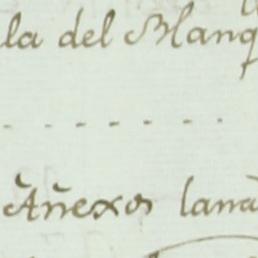 la del Blanq
- - - - - - -
Añexos lana